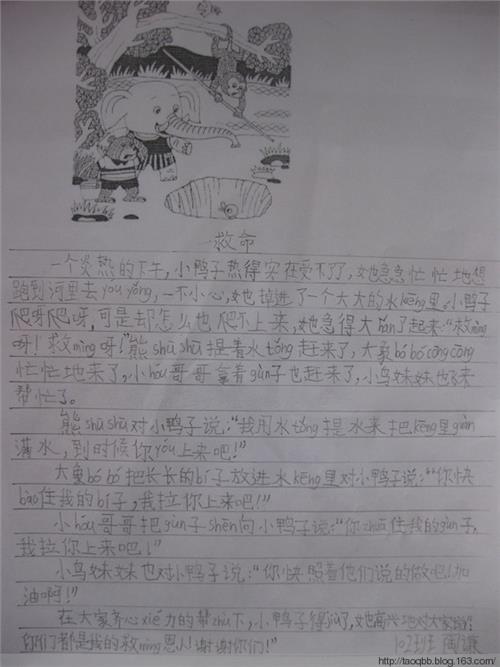 救命
一个炎热的下午，小鸭子热得实在受不了了，她急急忙忙地想
跑到河里去yóu yǒng，一不小心，她掉进了一个大大的水kēng里。小鸭子
爬呀爬呀，可是却怎么也爬不上来，她急得大hǎn了起来：“救mìng
呀！救mìng呀！”熊shū shū提着水tǒng赶来了，大象bó bó cōng cōng
忙忙地来了，小hóu哥哥拿着gùn子也赶来了，小鸟妹妹也来
帮忙了。
熊shū shū对小鸭子说：“我用水tǒng提水来把kēng里guàn
满水，到时候你yóu上来吧！”
大象bó bó把长长的bí子放进水kēng里对小鸭子说：“你快
bào住我的bí子，我拉你上来吧！”
小hóu哥哥把gùn子shēn向小鸭子说：“你zhuā住我的gùn子，
我拉你上来吧！”
小鸟妹妹也对小鸭子说：“你快照着他们说的做吧！加
油啊！”
在大家齐心xié力的帮zhù下，小鸭子得jiù了，她高兴地对大家说：
“你们都是我的救mìng恩人！谢谢你们！” 102班 陶谦
http://taoqbb.blog.163.com/